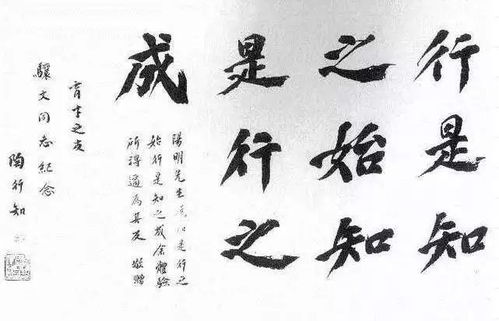 行是知
之始知
是行之
成
陽明先生是行之
始行是知之成余體驗
所得適為其反 敬贈
育才之友
驥文同志紀念
陶行知